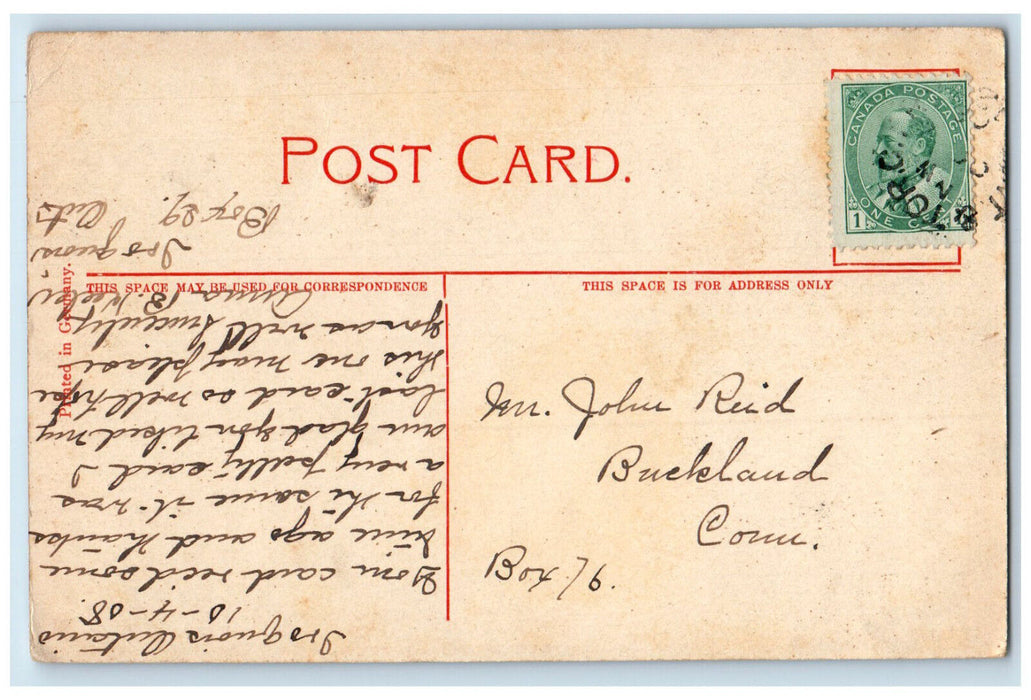 POST CARD.
CANADA POSTAGE
1
ONE
THIS SPACE MAY BE USED FOR CORRESPONDENCE
THIS SPACE IS FOR ADDRESS ONLY
Printed in Germany.
Mr. John Reid
Buckland
Conn.
Box 76.
Iroquois Ontario
10-4-08.
Your card recd some
time ago and thanks
for the same it was
a very pretty card I
am glad you liked my
last card as well hope
this one may please
you as well Sincerely
Anna B.
Iroquois
Box 89. Ont